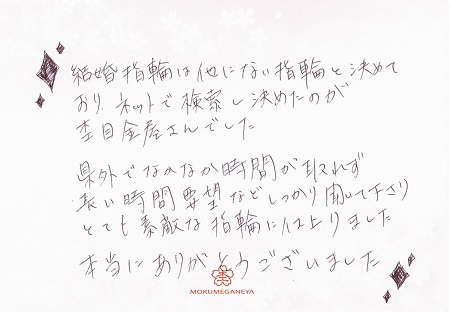 結婚指輪は他にない指輪と決めて
おり ネットで検索し決めたのが
杢目金屋さんでした
県外でなかなか時間が取れず
長い時間要望などしっかり聞いて下さり
とても素敵な指輪に仕上りました
本当にありがとうございました
MOKUMEGANEYA